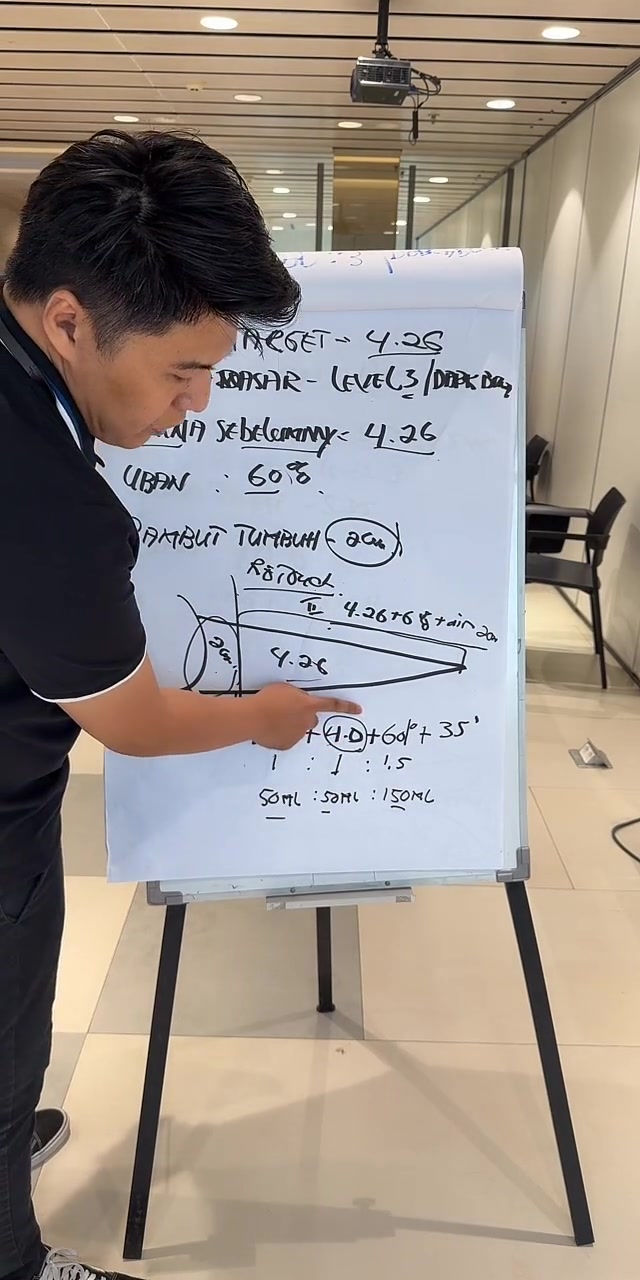 TARGET → 4.26
DASAR - LEVEL 3 / DARK
Sebelumny = 4.26
UBAN : 60%
RAMBUT TUMBUH - 2cm
RETOUCH
II 4.26+6%+air 2cm
2cm 4.26
+ 4.0 + 60/° + 35'
1 : 1 : 1.5
50ML : 50ML : 150ML